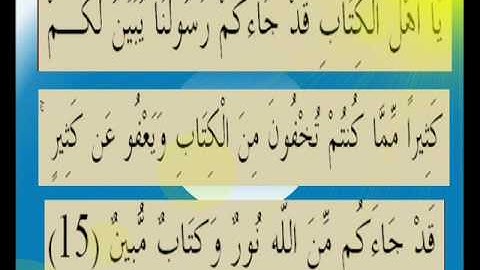 يَا أَهْلَ الْكِتَابِ قَدْ جَاءَكُمْ رَسُولُنَا يُبَيِّنُ لَكُمْ
كَثِيراً مِّمَّا كُنتُمْ تُخْفُونَ مِنَ الْكِتَابِ وَيَعْفُو عَن كَثِيرٍ ۚ
قَدْ جَاءَكُم مِّنَ اللَّه نُورٌ وَكِتَابٌ مُّبِينٌ (15)